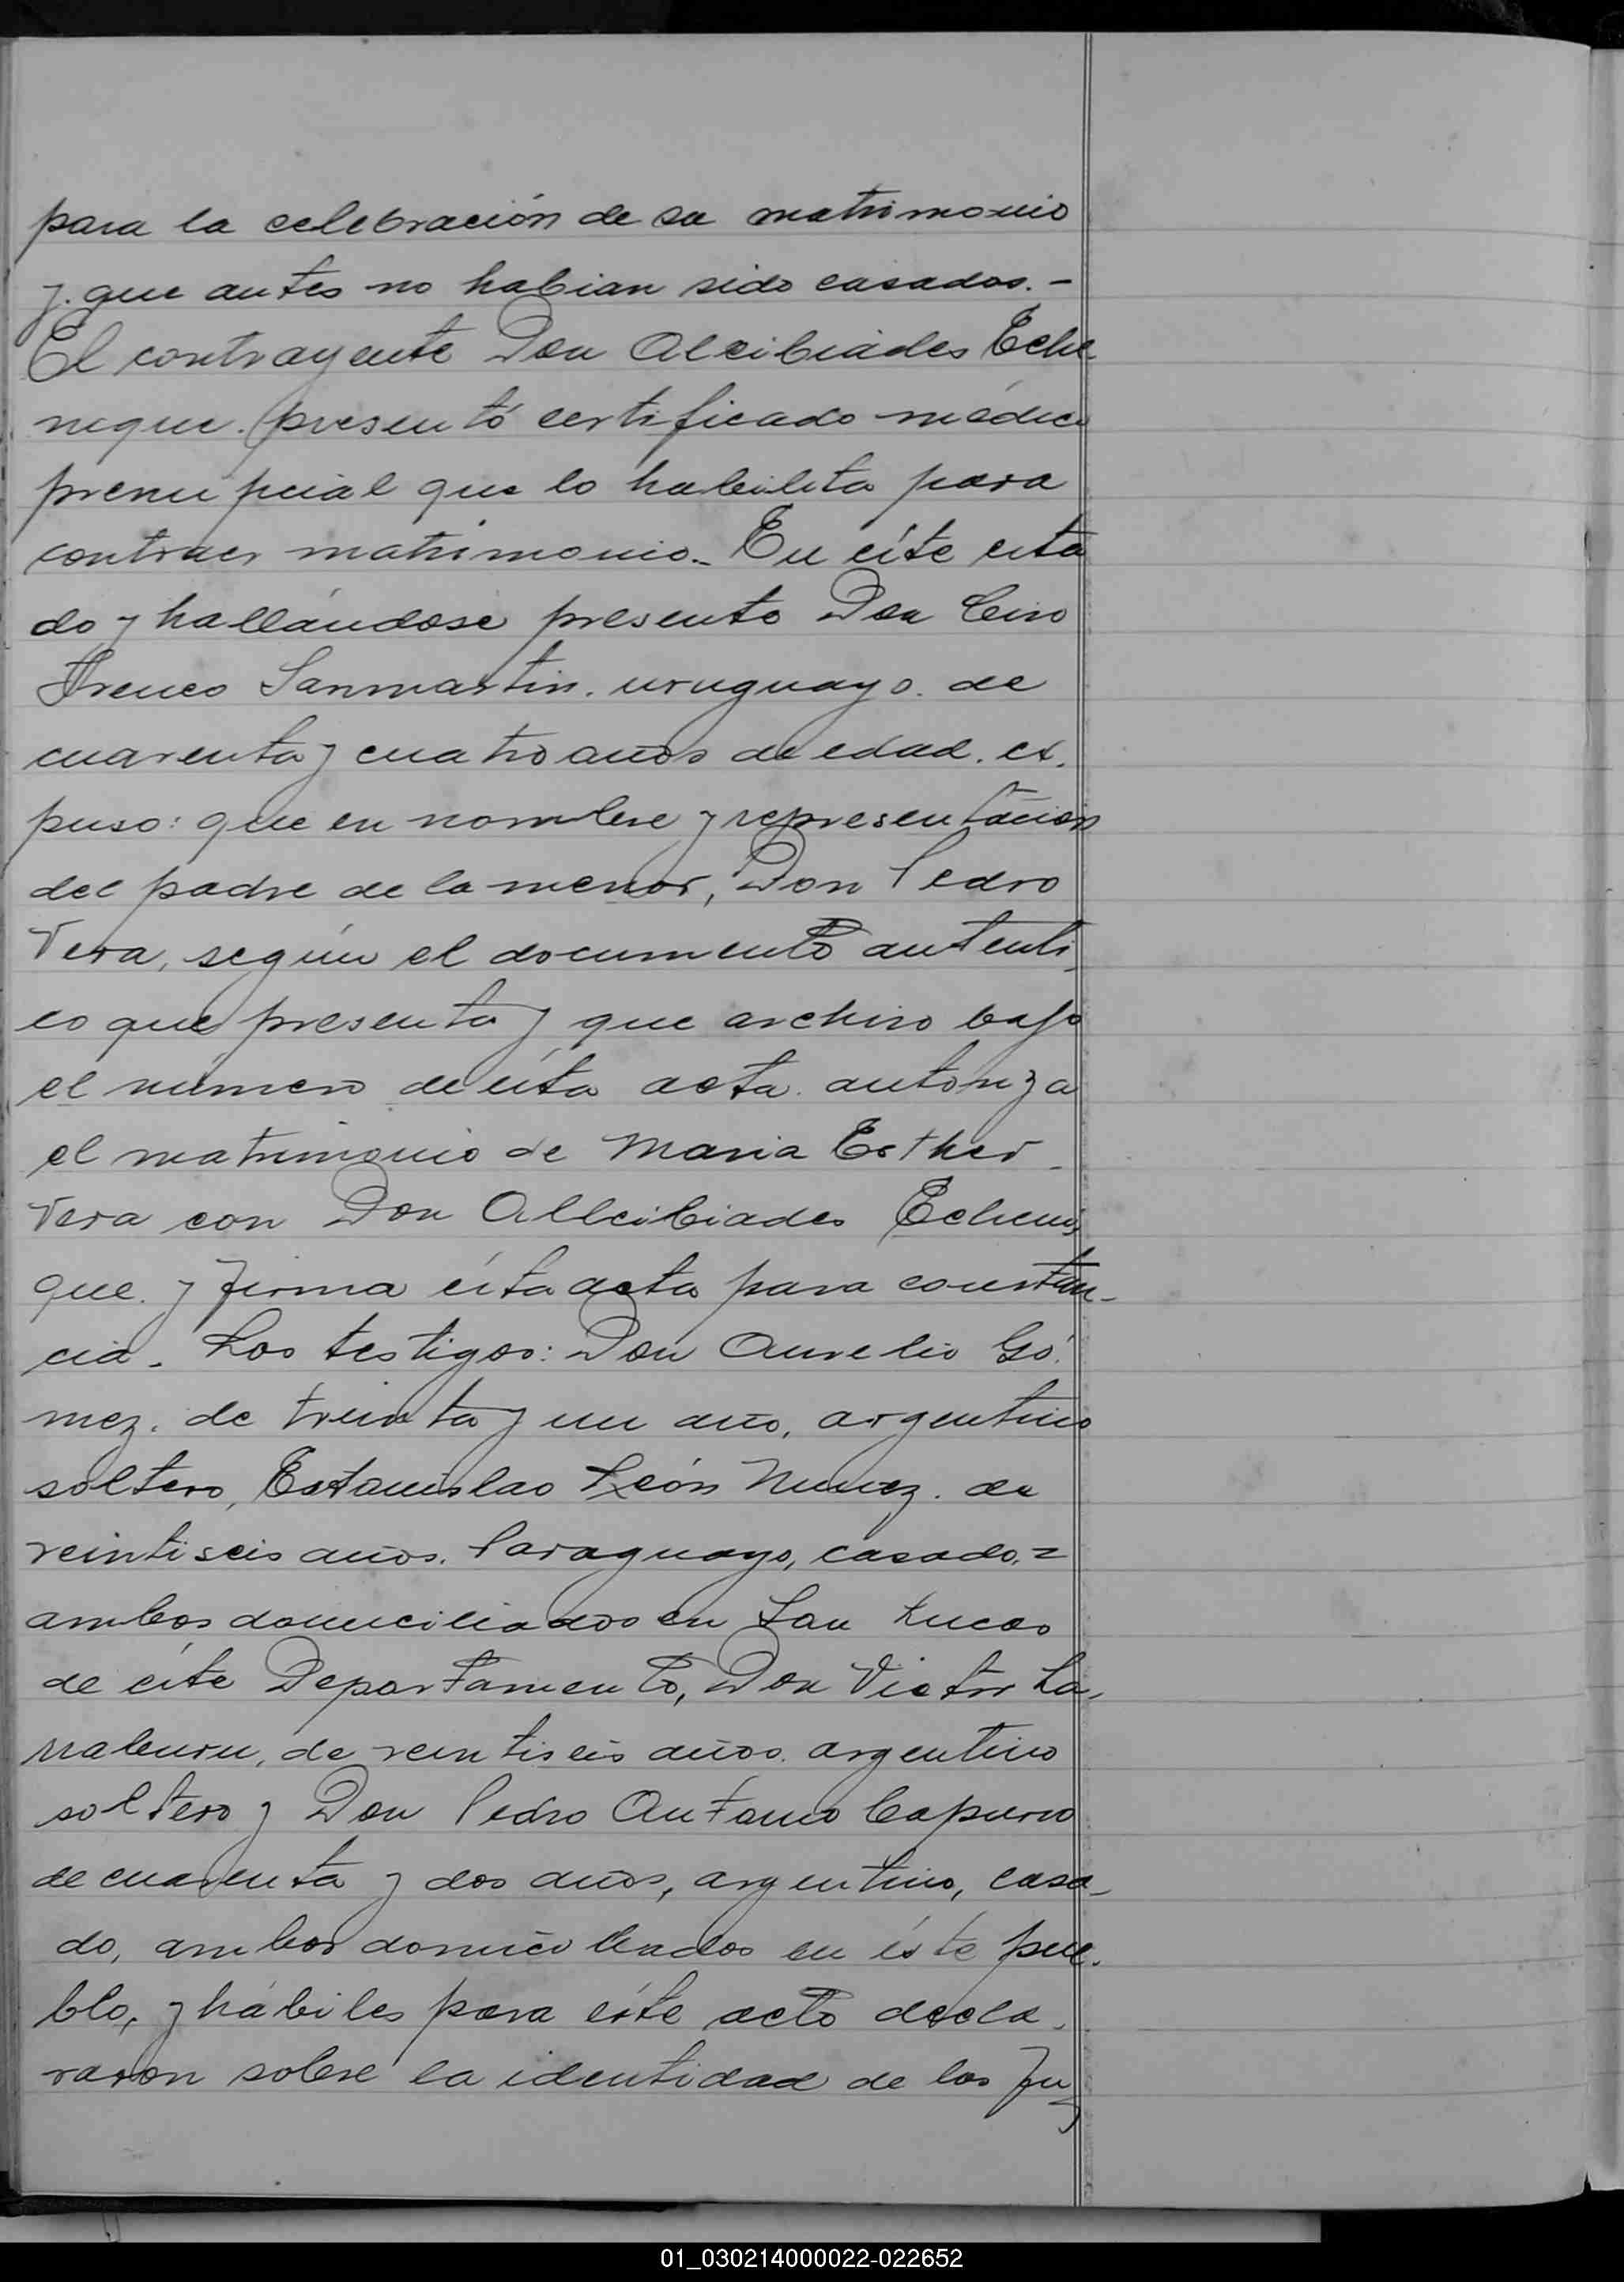 para la celebración de su matrimonio
y que antes no habian sido casados.-
El contrayente Don Alcibiades Eche
nique. presentó certificado médico
prenupcial que lo habilita para
contraer matrimonio.- En éste esta
do y hallándose presente Don Ciro
Ireneo Sanmartin. uruguayo. de
cuarenta y cuatro años de edad. ex.
puso: que en nombre y representación
del padre de la menor, Don Pedro
Vera, según el documento autenti
co que presenta y que archivo bajo
el número de ésta acta. autoriza
el matrimonio de Maria Esther
Vera con Don Allcibiades Echeni
que. y firma ésta acta para constan-
cia. Los testigos: Don Aurelio Gó.
mez. de treinta y un año, argentino
soltero, Estanislao León Nunez. de
veintiseis años. Paraguayo, casado.=
ambos domiciliados en San Lucas
de éste Departamento, Don Victor La.
rraburu, de veintiseis años. argentino
soltero y Don Pedro Antonio Capurro
de cuarenta y dos años, argentino, casa-
do, ambos domiciliados en éste pue.
blo, y hábiles para éste acto decla.
raron sobre la identidad de los fu
01_030214000022-022652